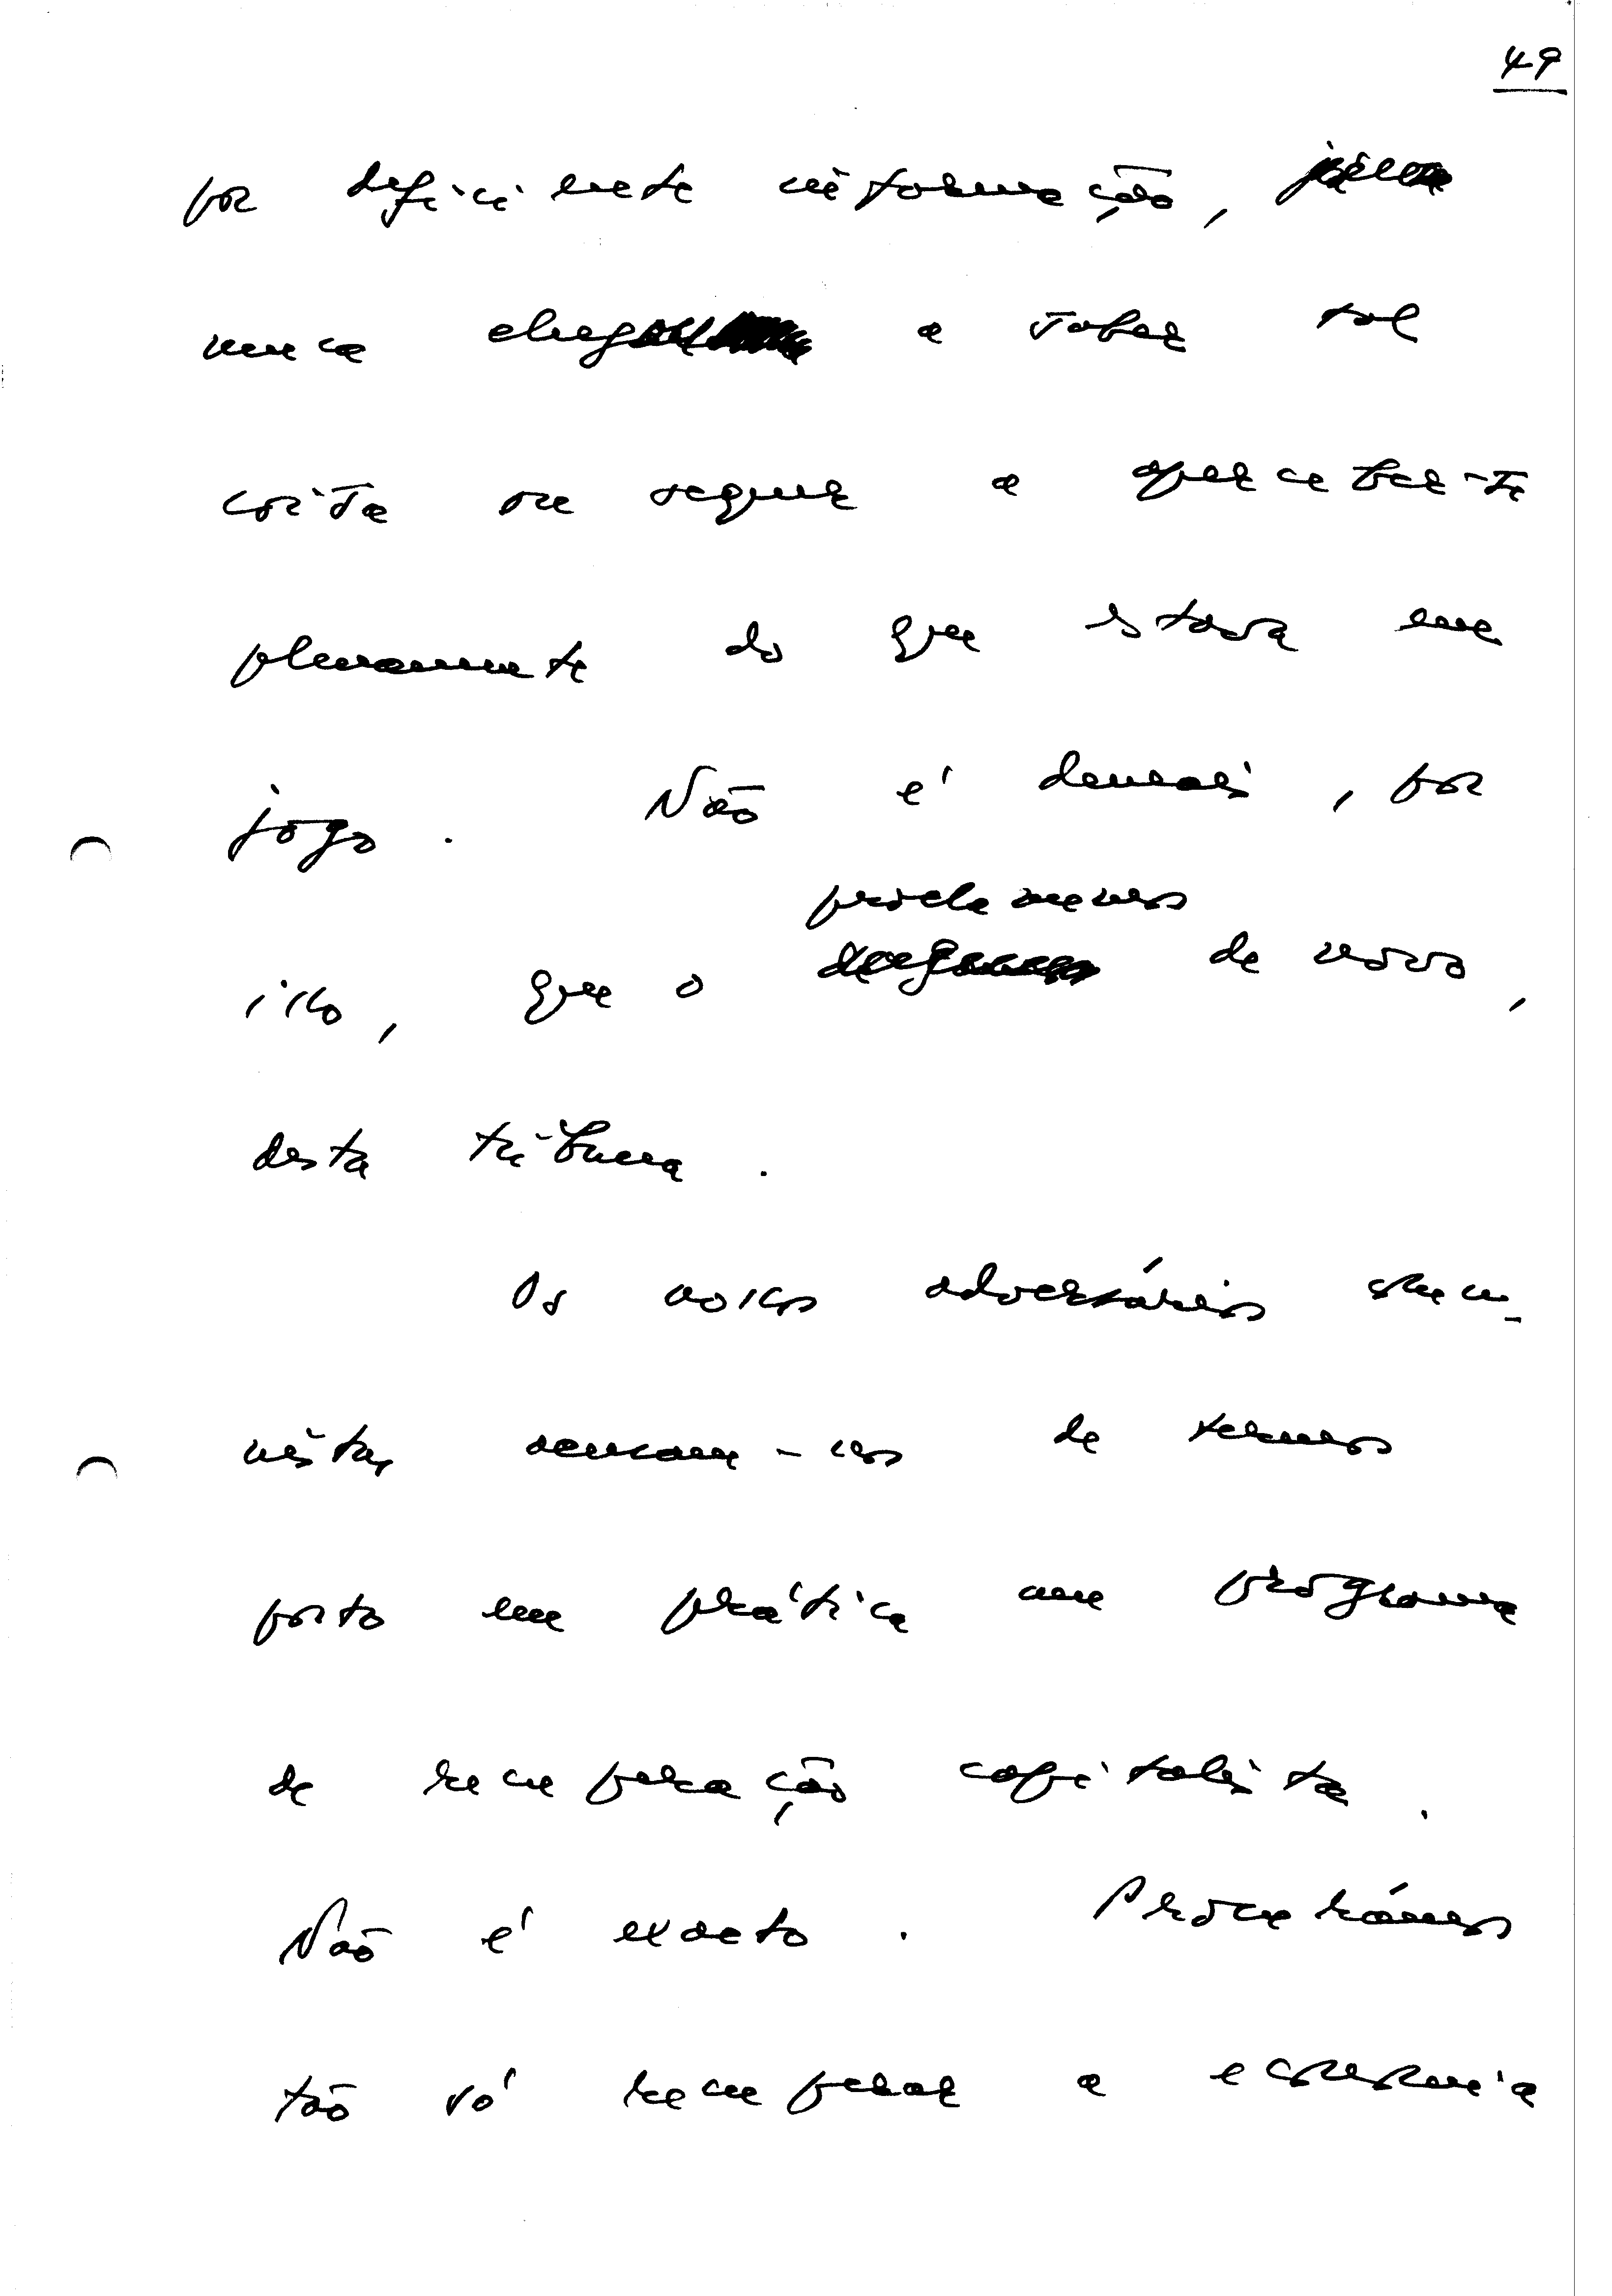 49
por deficiente informação,
nunca chegou a saber tal
coisa ou sequer a aperceber-se
plenamente do que estava em
jogo. Não é demais, por
proclamemos
isso, que o de novo,
desta tribuna.
Os nossos adversários comu-
nistas acusam-nos de termos
posto em prática um programa
de recuperação capitalista.
Não é exacto. Procurámos
tão só recuperar a economia